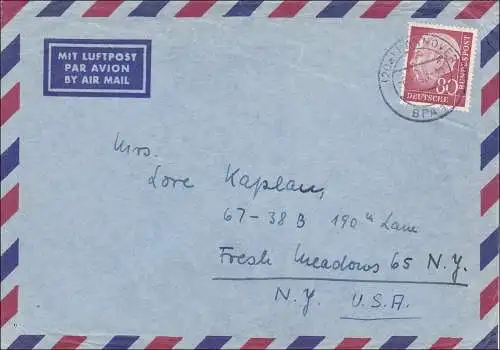 MIT LUFTPOST
PAR AVION
BY AIR MAIL
HANNOVER
BPA
80
DEUTSCHE
BUNDESPOST
Mrs.
Lore Kaplan,
67-38 B 190th Lane
Fresh Meadows 65 N.Y.
N.Y. U.S.A.